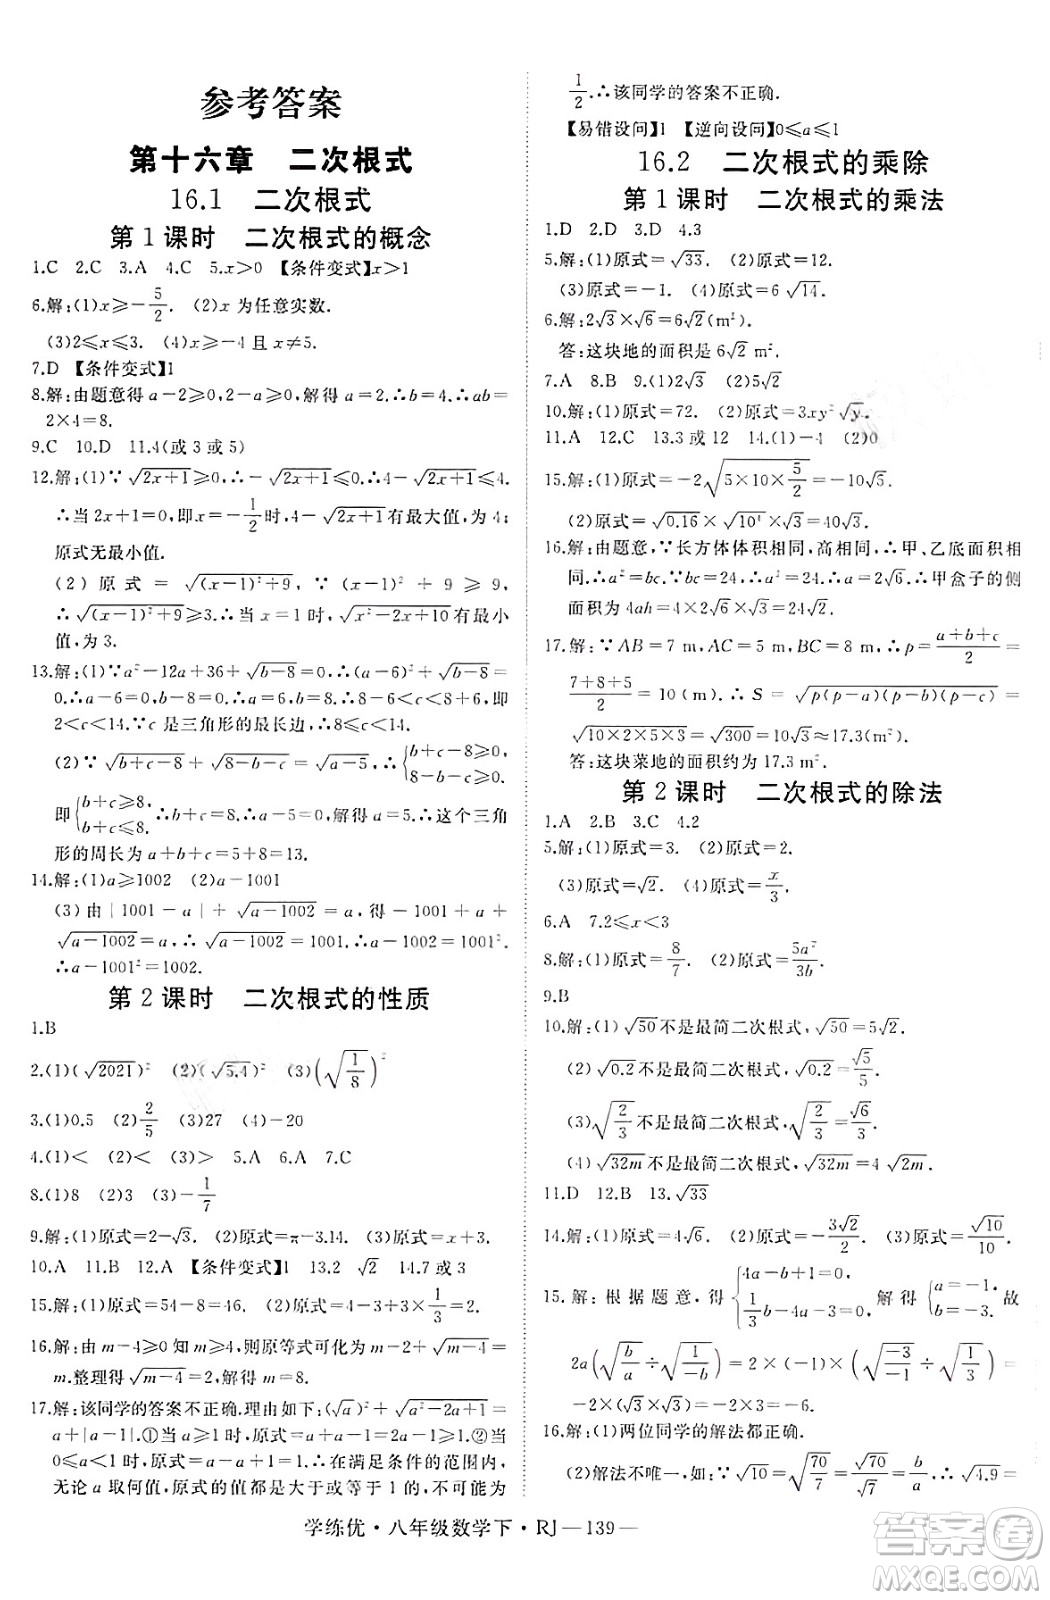 参考答案
第十六章　二次根式
16.1　二次根式
第1课时　二次根式的概念
1.C　2.C　3.A　4.C　5.x＞0　【条件变式】x＞1
6.解:(1)x≥－5/2.　(2)x 为任意实数.
(3)2≤x≤3.　(4)x≥－4 且 x≠5.
7.D　【条件变式】1
8.解:由题意得 a－2≥0,2－a≥0.∴a＝2.∴b＝4.∴ab＝
2×4＝8.
9.C　10.D　11.4(或 3 或 5)
12.解:(1)∵√(2x＋1)≥0,∴－√(2x＋1)≤0.∴4－√(2x＋1)≤4.
∴当 2x＋1＝0,即x＝－1/2时,4－√(2x＋1)有最大值,为 4;
原式无最小值.
(2)原式＝√((x－1)²＋9),∵(x－1)²＋9≥9,
∴√((x－1)²＋9)≥3.∴当 x＝1 时,√(x²－2x＋10)有最小
值,为 3.
13.解:(1)∵a²－12a＋36＋√(b－8)＝0,∴(a－6)²＋√(b－8)＝
0.∴a－6＝0,b－8＝0.∴a＝6,b＝8.∴8－6＜c＜8＋6,即
2＜c＜14.∵c 是三角形的最长边,∴8≤c＜14.
(2)∵√(b＋c－8)＋√(8－b－c)＝√(a－5),∴{b＋c－8≥0, 8－b－c≥0.
即{b＋c≥8, b＋c≤8.∴b＋c＝8.∴a－5＝0,解得 a＝5.∴这个三角
形的周长为 a＋b＋c＝5＋8＝13.
14.解:(1)a≥1002　(2)a－1001
(3)由|1001－a|＋√(a－1002)＝a,得－1001＋a＋
√(a－1002)＝a,∴√(a－1002)＝1001.∴a－1002＝1001².
∴a－1001²＝1002.
第2课时　二次根式的性质
1.B
2.(1)(√2021)²　(2)(√5.4)²　(3)(√(1/8))²
3.(1)0.5　(2)2/5　(3)27　(4)－20
4.(1)＜　(2)＞　5.A　6.A　7.C
8.(1)8　(2)3　(3)－1/7
9.解:(1)原式＝2－√3.　(2)原式＝π－3.14.　(3)原式＝x＋3.
10.A　11.B　12.A　【条件变式】1　13.2　√2　14.7或3
15.解:(1)原式＝54－8＝46.　(2)原式＝4－3＋3×1/3＝2.
16.解:由 m－4≥0 知 m≥4,则原等式可化为 m－2＋√(m－4)＝
m.整理得√(m－4)＝2,解得 m＝8.
17.解:该同学的答案不正确.理由如下:(√a)²＋√(a²－2a＋1)＝
a＋|a－1|.①当 a≥1 时,原式＝a＋a－1＝2a－1≥1.②当
0≤a＜1 时,原式＝a－a＋1＝1.∴在满足条件的范围内,
无论 a 取何值,原式的值都是大于或等于 1 的,不可能为
1/2.∴该同学的答案不正确.
【易错设问】1　【逆向设问】0≤a≤1
16.2　二次根式的乘除
第1课时　二次根式的乘法
1.D　2.D　3.D　4.3
5.解:(1)原式＝√33.　(2)原式＝12.
(3)原式＝－1.　(4)原式＝6√14.
6.解:2√3×√6＝6√2(m²).
答:这块地的面积是 6√2 m².
7.A　8.B　9.(1)2√3　(2)5√2
10.解:(1)原式＝72.　(2)原式＝3xy²√y.
11.A　12.C　13.3 或 12　14.(1)－4　(2)0
15.解:(1)原式＝－2√(5×10×5/2)＝－10√5.
(2)原式＝√0.16×√10⁴×√3＝40√3.
16.解:由题意,∵长方体体积相同,高相同,∴甲、乙底面积相
同.∴a²＝bc.∵bc＝24,∴a²＝24.∴a＝2√6.∴甲盒子的侧
面积为 4ah＝4×2√6×2√3＝24√2.
17.解:∵AB＝7 m,AC＝5 m,BC＝8 m,∴p＝(a＋b＋c)/2＝
(7＋8＋5)/2＝10(m).∴S＝√(p(p－a)(p－b)(p－c))＝
√(10×2×5×3)＝√300＝10√3≈17.3(m²).
答:这块菜地的面积约为 17.3 m².
第2课时　二次根式的除法
1.A　2.B　3.C　4.2
5.解:(1)原式＝3.　(2)原式＝2.
(3)原式＝√2.　(4)原式＝x/3.
6.A　7.2≤x＜3
8.解:(1)原式＝8/7.　(2)原式＝5a²/3b.
9.B
10.解:(1)√50不是最简二次根式,√50＝5√2.
(2)√0.2不是最简二次根式,√0.2＝√5/5.
(3)√(2/3)不是最简二次根式,√(2/3)＝√6/3.
(4)√(32m)不是最简二次根式,√(32m)＝4√(2m).
11.D　12.B　13.√33
14.解:(1)原式＝4√3.　(2)原式＝－3√2/2.　(3)原式＝√10/10.
15.解:根据题意,得{4a－b＋1＝0, 1/3b－4a－3＝0.解得{a＝－1, b＝－3.故
2a(√(b/a)÷√(1/－b))＝2×(－1)×(√(－3/－1)÷√(1/3))＝
－2×(√3×√3)＝－2×3＝－6.
16.解:(1)两位同学的解法都正确.
(2)解法不唯一,如:∵√10＝√(70/7)＝√70/√7＝b/a,∴√4.9＝
学练优·八年级数学下·RJ—139—
答案圈
MXQE.COM